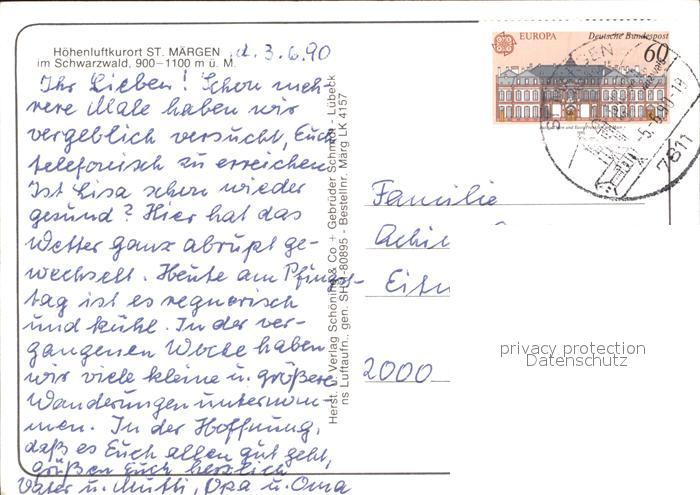 Höhenluftkurort ST. MÄRGEN
im Schwarzwald, 900–1100 m ü. M.
d. 3.6.90
Ihr Lieben! Schon meh-
rere Male haben wir
vergeblich versucht, Euch
telefonisch zu erreichen.
Ist Lisa schon wieder
gesund? Hier hat das
Wetter ganz abrupt ge-
wechselt. Heute am Pfingst-
tag ist es regnerisch
und kühl. In der ver-
gangenen Woche haben
wir viele kleine u. größere
Wanderungen unternom-
men. In der Hoffnung,
daß es Euch allen gut geht,
grüßen Euch herzlich
Vater u. Mutti, Opa u. Oma
Herst. u. Verlag Schöning & Co + Gebrüder Schmidt - Lübeck
ns Luftaufn., gen. SH 80895 - Bestellnr. Märg LK 4157
EUROPA Deutsche Bundespost
60
7811
Familie
Achi
Eit
2000
privacy protection
Datenschutz